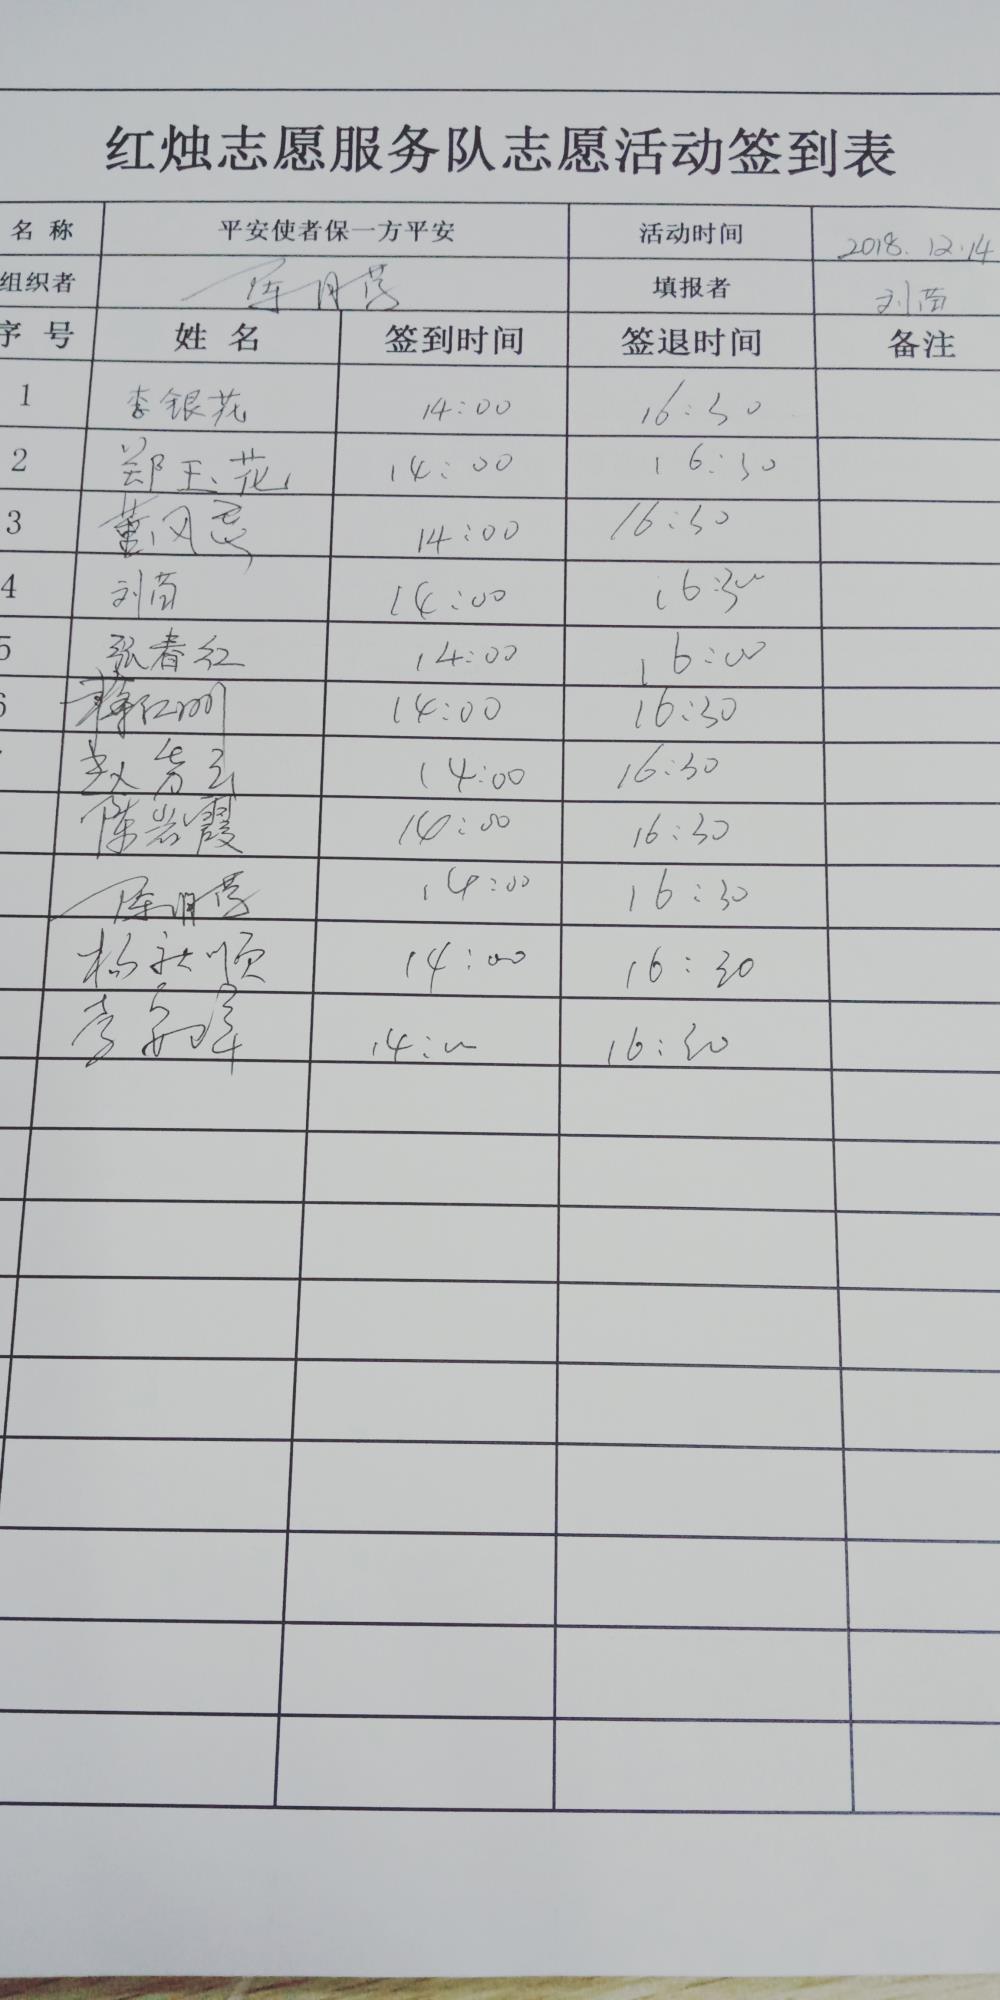 红烛志愿服务队志愿活动签到表
名 称 平安使者保一方平安 活动时间 2018.12.14
组织者 陈月萍 填报者 刘苗
序 号 姓 名 签到时间 签退时间 备注
1 李银花 14:00 16:30
2 郑玉花 14:00 16:30
3 董风 14:00 16:30
4 刘苗 14:00 16:30
5 张春红 14:00 16:00
6 14:00 16:30
赵芳玉 14:00 16:30
陈岩霞 14:00 16:30
陈月萍 14:00 16:30
杨秋顺 14:00 16:30
李 14:00 16:30